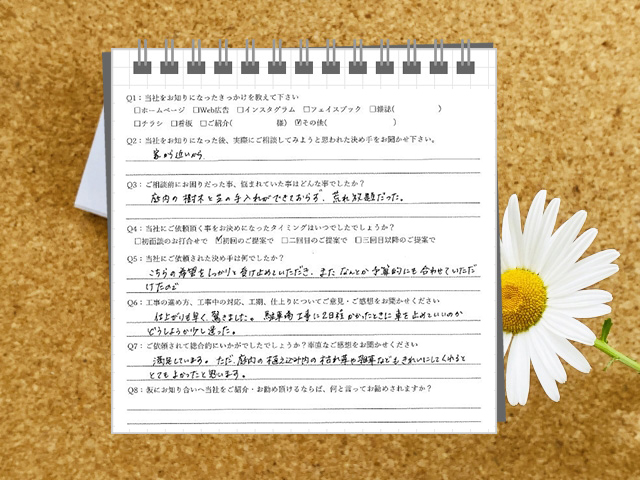 Q1：当社をお知りになったきっかけを教えて下さい
□ホームページ □Web広告 □インスタグラム □フェイスブック □雑誌( )
□チラシ □看板 □ご紹介( 様) ☑その他( )
Q2：当社をお知りになった後、実際にご相談してみようと思われた決め手をお聞かせ下さい。
家から近いから
Q3：ご相談前にお困りだった事、悩まれていた事はどんな事でしたか？
庭内の樹木と草の手入れができておらず、荒れ放題だった。
Q4：当社にご依頼頂く事をお決めになったタイミングはいつでしたでしょうか？
□初面談のお打合せで ☑初回のご提案で □二回目のご提案で □三回目以降のご提案で
Q5：当社にご依頼された決め手は何でしたか？
こちらの希望をしっかりと受け止めていただき、また なんとか予算的にも合わせていただ
けたので
Q6：工事の進め方、工事中の対応、工期、仕上りについてご意見・ご感想をお聞かせください
仕上がりも早く、驚きました。駐車場工事に2日程かかったときに車を止めていいのか
どうしようか少し迷った。
Q7：ご依頼されて総合的にいかがでしたでしょうか？率直なご感想をお聞かせください
満足しています。ただ、庭内の植え込み内の枯れ葉や雑草などもきれいにしてくれると
とてもよかったと思います。
Q8：仮にお知り合いへ当社をご紹介・お勧め頂けるならば、何と言ってお勧めされますか？